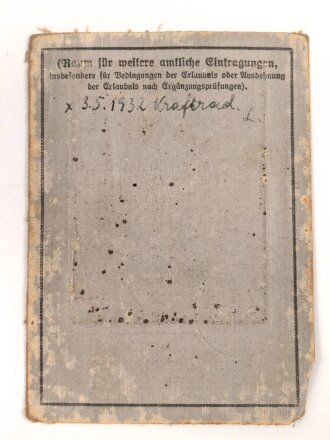 (Raum für weitere amtliche Eintragungen,
insbesondere für Bedingungen der Erlaubnis oder Ausdehnung
der Erlaubnis nach Ergänzungsprüfungen).
x 3.5.1932 Kraftrad.